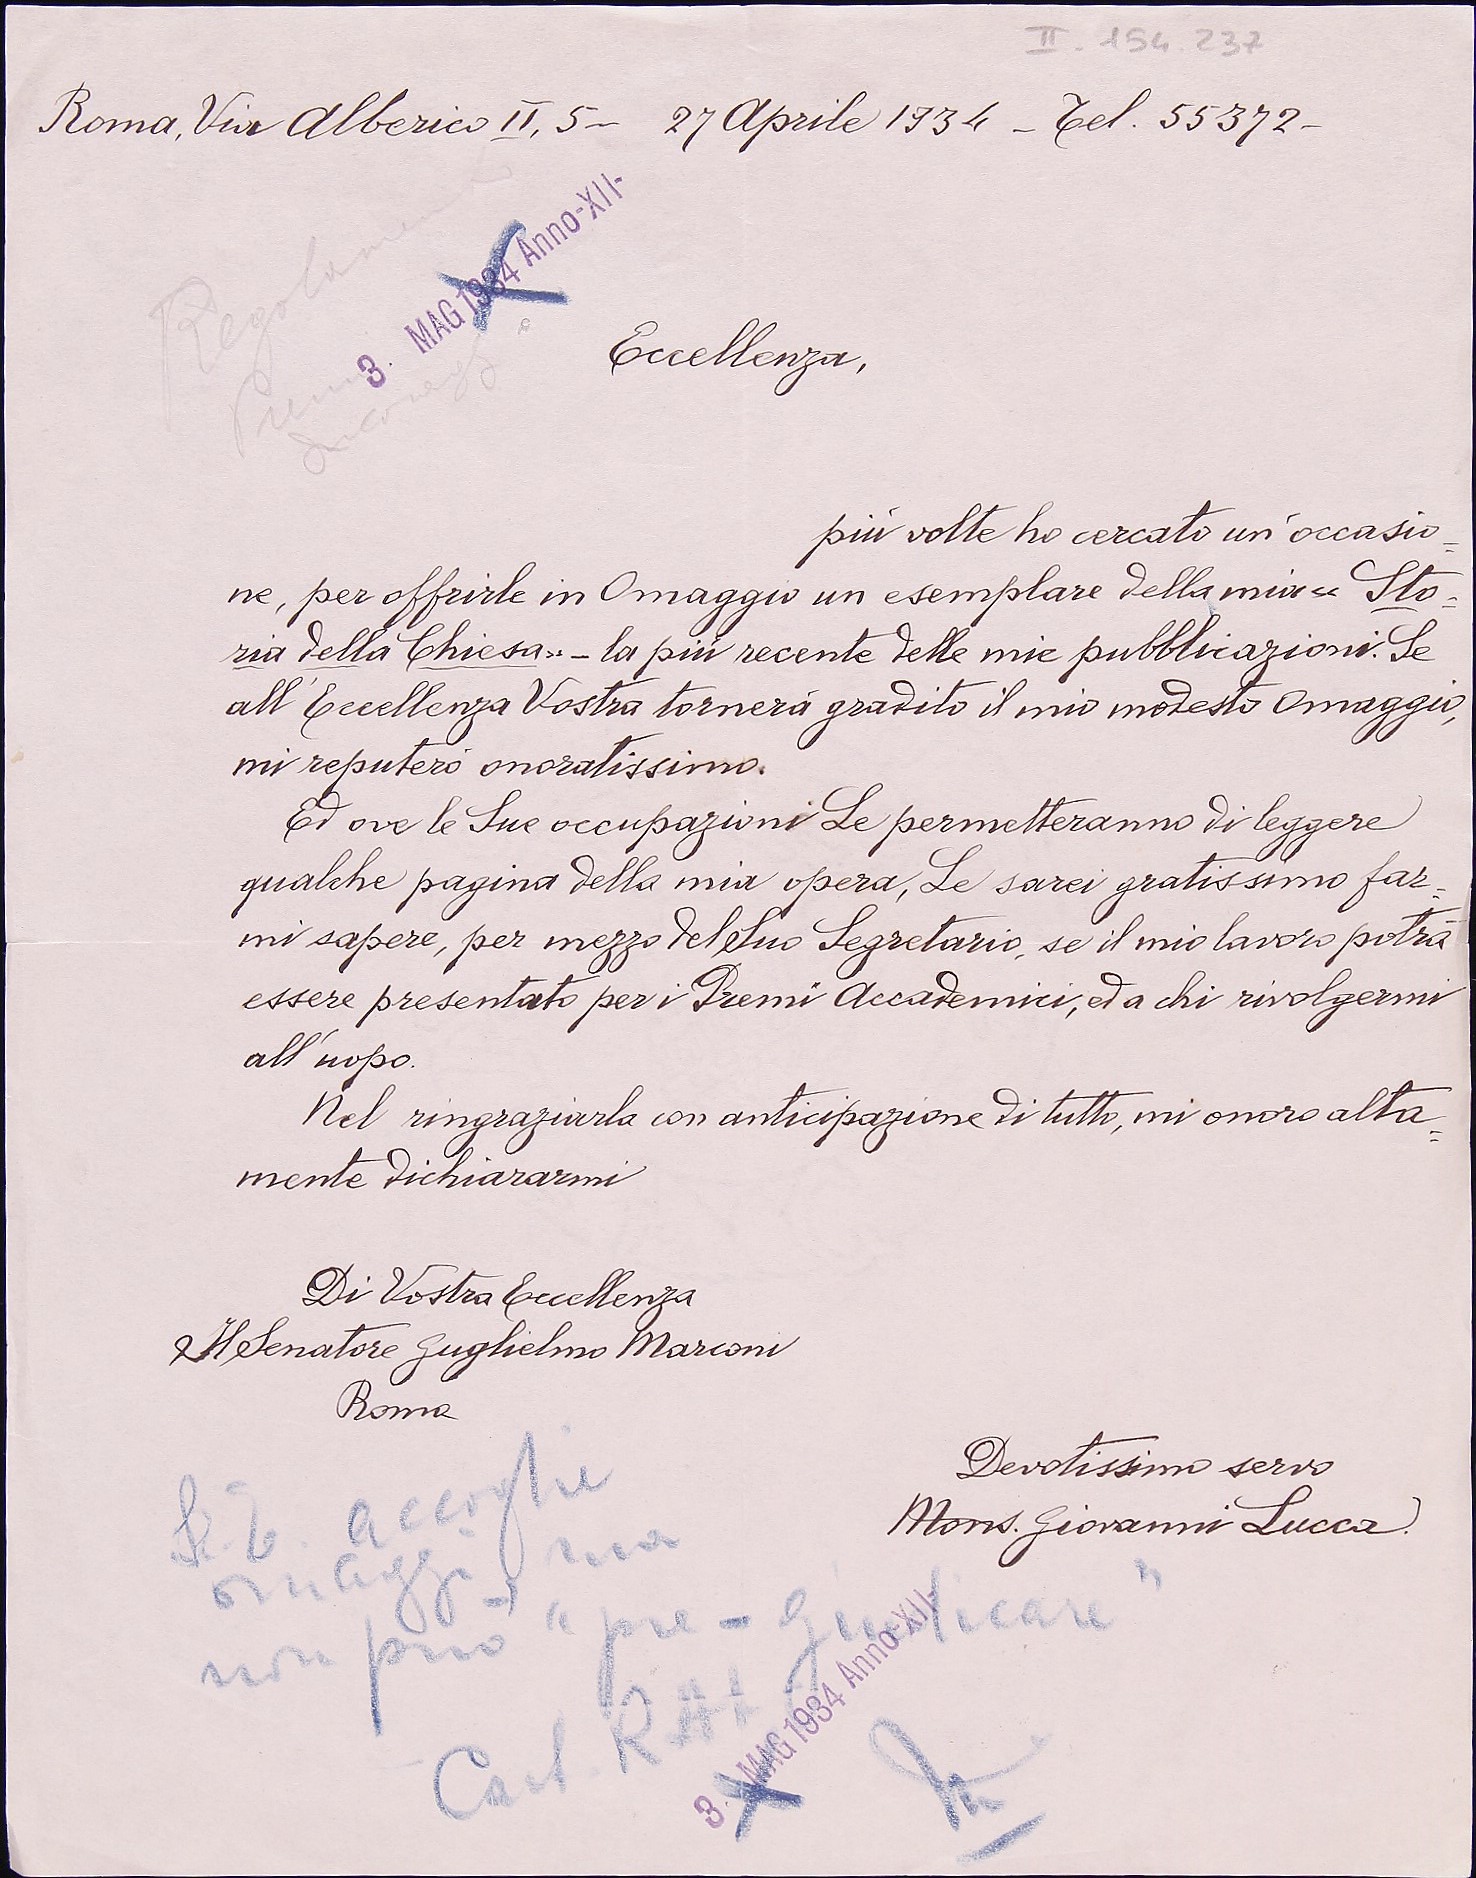 II. 154. 237
Roma, Via Alberico II, 5- 27 Aprile 1934 - Tel. 55372-
Regolamento
Premi
Incoragg.
3. MAG 1934 Anno-XII-
Eccellenza,
più volte ho cercato un'occasio=
ne, per offrirle in Omaggio un esemplare della mia « Sto=
ria della Chiesa» - la più recente delle mie pubblicazioni. Se
all'Eccellenza Vostra tornerà gradito il mio modesto Omaggio,
mi reputerò onoratissimo.
Ed ove le Sue occupazioni Le permetteranno di leggere
qualche pagina della mia opera, Le sarei gratissimo far=
mi sapere, per mezzo del Suo Segretario, se il mio lavoro potrà
essere presentato per i Premi Accademici, ed a chi rivolgermi
all'uopo.
Nel ringraziarla con anticipazione di tutto, mi onoro alta=
mente dichiararmi
Di Vostra Eccellenza
Il Senatore Guglielmo Marconi
Roma
Devotissimo servo
Mons. Giovanni Lucca.
S. E. accoglie
omaggio, ma
non può "pre-giudicare"
3. MAG 1934 Anno-XII-